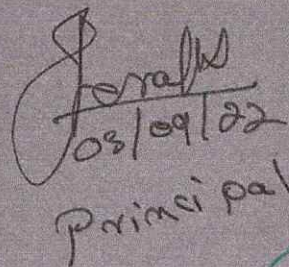 03/09/22
Principal